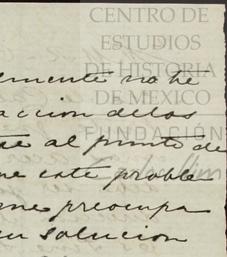 CENTRO DE
ESTUDIOS
DE HISTORIA
DE MEXICO
FUNDACIÓN
lmente no he
accion de los
te al punto de
me este proble
me preocupa
su solucion